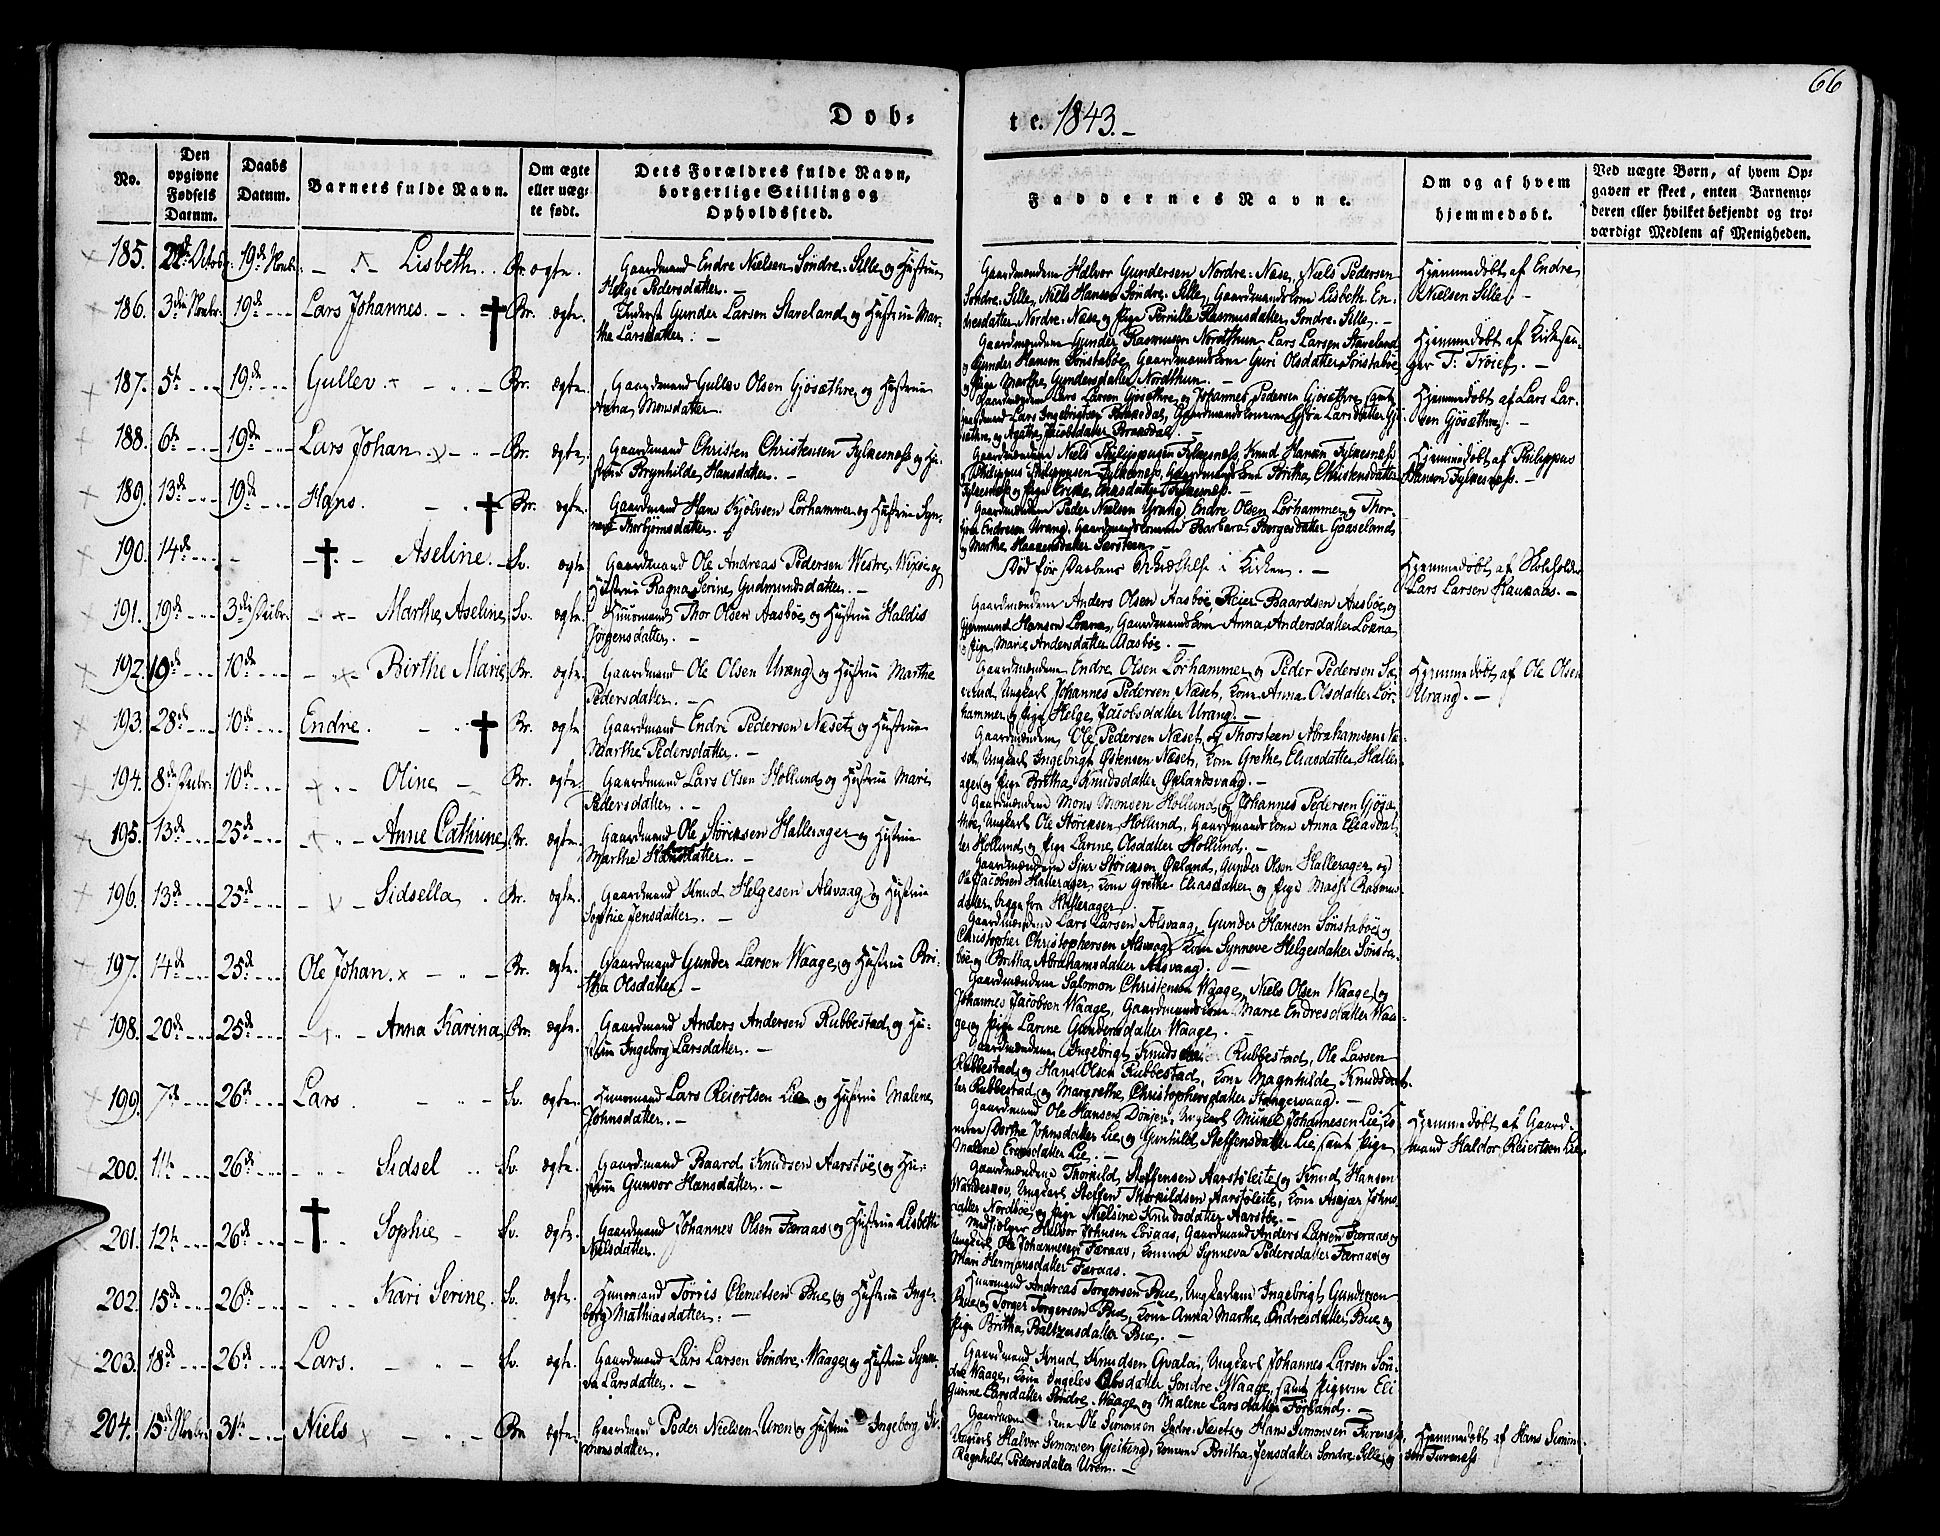 66
Døb-
te. 1843.-
No.
Den opgivne Fødsels Datum.
Daabs Datum.
Barnets fulde Navn.
Om ægte eller uæg-te født.
Dets Forældres fulde Navn, borgerlige Stilling og Opholdssted.
Faddernes Navne.
Om og af hvem hjemmedøbt.
Ved uægte Børn, af hvem Op-
gaven er skeet, enten Barnemo-
deren eller hvilket bekjendt og tro-
værdigt Medlem af Menigheden.
185. Octobr. 19de Novbr. Lisbeth. Br. ægte. Gaardmand Endre Nielsen Søndre-Sille og Hustrue
Helge Pedersdatter. -
Gaardmændene Halvor Gundersen Nordre-Næse, Niels Pedersen
Søndre-Sille, Niels Hansen Søndre-Sille, Gaardmandskone Lisbeth En-
dresdatter Nordre-Næse og Pige Pernille Rasmusdatter Søndre-Sille. -
Hjemmedøbt af Endre
Nielsen Sille. -
186. 3die Novbr. 19de Lars Johannes. Br. ægte. Inderst Gunder Larsen Staveland og Hustrue Mar-
the Larsdatter. -
Gaardmændene Gunder Rasmussen Nordthun, Lars Larsen Staveland
og Gunder Hansen Sønstabøe, Gaardmandskone Guri Olsdatter Sønstabøe
og Pige Marthe Gundersdatter Nordthun. -
Hjemmedøbt af Kirkesan-
ger T: Troief. -
187. 5te 19de Gullev Br. ægte. Gaardmand Gullev Olsen Gjøsæthre og Hustrue
Anna Monsdatter.
Gaardmændene Lars Larsen Gjøsæthre og Johannes Pedersen Gjøsæthre samt
Lars Ingebrigtsen
Hjemmedøbt af Lars Lar-
sen Gjøsæthre. -
188. 6te 19de Lars Johan. Br. ægte. Gaardmand Christen Christensen Fylkesnæss og Hu-
strue Brynhilde Hansdatter. -
Gaardmændene Niels Philippusen Fylkesnæss, Knud Hansen Fylkesnæss
Philippus Philippusen Fylkesnæss, Gaardmandskone Britha Christensdatter
Hjemmedøbt af Philippus
Hanson Fylkesnæss. -
189. 13de 19de Hans. Br. ægte. Gaardmand Hans Kjølvsen Lørhammer og Hustrue Syn-
neve Thorbjørnsdatter. -
Gaardmændene Peder Nielsen Urang, Endre Olsen Lørhammer og Thor-
Endresen Urang, Gaardmandskonerne Barbara Borgersdatter Gaaseland
190. 14de Aseline. Sv. ægte Gaardmand Ole Andreas Pedersen Westre-Wixøe og
Hustrue Ragna Serine Gudmundsdatter. -
Død før Daabens Stadfæstelse i Kirken. -
Hjemmedøbt af Skoleholder
Lars Larsen Haukaas. -
191. 19de 3die Decbr. Marthe Aseline Sv. ægte. Huusmand Thor Olsen Aasbøe og Hustrue Haldis
Jørgensdatter. -
Gaardmændene Anders Olsen Aasbøe, Reier Baardsen Aasbøe og
Hansen Lønna, Gaardmandskone Anna Andersdatter Lønna
Pige Marie Andersdatter Aasbøe. -
192. 19de 10de Birthe Marie Br. ægte. Gaardmand Ole Olsen Urang og Hustrue Marthe
Pedersdatter. -
Gaardmændene Endre Olsen Lørhammer og Peder Pedersen Sæ-
verud, Ungkarl Johannes Pedersen Næset, Kone Anna Olsdatter Lør-
hammer og Pige Helge Jacobsdatter Urang. -
Hjemmedøbt af Ole Olsen
Urang. -
193. 28de 10de Endre. Br. ægte Gaardmand Endre Pedersen Næset og Hustrue
Marthe Pedersdatter. -
Gaardmændene Ole Pedersen Næset og Thorsteen Abrahamsen Næ-
set, Ungkarl Ingebrigt Østensen Næset, Kone Grethe Eliasdatter Halle-
ager og Pige Britha Knudsdatter Øklandsvaag. -
194. 8de Decbr. 10de Oline Br. ægte. Gaardmand Lars Olsen Hollund og Hustrue Mari
Pedersdatter. -
Gaardmændene Mons Monsen Hollund og Johannes Pedersen Gjøsæ-
thre, Ungkarl Ole Størksen Hollund, Gaardmandskone Anna Eliasdat-
ter Hollund og Pige Larine Olsdatter Hollund. -
195. 13de 25de Anne Cathrine Br. ægte. Gaardmand Ole Størksen Hallerager og Hustrue
Marthe Hansdatter. -
Gaardmændene Siur Størksen Økland, Gunder Olsen Hallerager og
Ole Jacobsen Hallerager, Kone Grethe Eliasdatter og Pige Massi Rasmus-
datter, begge fra Hallerager.
196. 13de 25de Sidsella Br. ægte. Gaardmand Knud Helgesen Alsvaag og Hustrue
Sophie Jensdatter. -
Gaardmændene Lars Larsen Alsvaag, Gunder Hansen Sønstabøe og
Christopher Christophersen Alsvaag, Kone Synneve Helgesdatter Sønsta-
bøe og Britha Abrahamsdatter Alsvaag. -
197. 14de 25de Ole Johan. Br. ægte. Gaardmand Gunder Larsen Waage og Hustrue Bri-
tha Olsdatter. -
Gaardmændene Salomon Christensen Waage, Niels Olsen Waage og
Johannes Jacobsen Waage, Gaardmandskone Marie Endresdatter Waa-
ge og Pige Larine Gundersdatter Waage. -
198. 20de 25de Anna Karina Br. ægte. Gaardmand Anders Andersen Rubbestad og Hu-
strue Ingeborg Larsdatter. -
Gaardmændene Ingebrigt Knudsen Rubbestad, Ole Larsen
Rubbestad og Hans Olsen Rubbestad, Kone Magnhilde Knudsdat-
ter Rubbestad og Margrethe Christophersdatter Stangervaag. -
199. 7de 26de Lars. Sv. ægte. Huusmand Lars Reiertsen Lie og Hustrue Malene
Johnsdatter. -
Gaardmand Ole Hansen Dønjen, Ungkarl Mikkel Johannesen Lie, Ko-
nerne Dorthe Johnsdatter Lie og Gunhild Steffensdatter Lie, samt Pige
Malene Ericsdatter Lie. -
Hjemmedøbt af Gaard-
mand Haldor Reiertsen Lie
200. 11te 26de Sidsel Sv. ægte. Gaardmand Baard Knudsen Aarstøe og Hu-
strue Gunvor Hansdatter. -
Gaardmændene Thorkild Steffensen Aarstøleite og Knud Hansen
Wandeskov, Ungkarl Steffen Thorkildsen Aarstøleite, Kone Asgjær Johns-
datter Nordbøe og Pige Nielsine Knudsdatter Aarstøe. -
201. 12te 26de Sophie Sv. ægte. Gaardmand Johannes Olsen Færaas og Hustrue Lisbeth
Nielsdatter.
Halvor Johnsen Løvaas, Gaardmand Anders Larsen Færaas og
Ungkarl Ole Johannesen Færaas, Konerne Synneva Pedersdatter Færaas og
Mari Hermansdatter Færaas.
202. 15de 26de Kari Serine. Sv. ægte. Huusmand Tørris Clemetsen Bue og Hustrue Inge-
borg Mathiasdatter. -
Huusmand Andreas Torgersen Bue, Ungkarlene Ingebrigt Gundersen
Bue og Torger Torgersen Bue, Kone Anna Marthe Endresdatter Bue og
Pige Britha Baltzersdatter Bue. -
203. 18de 26de Lars. Sv. ægte. Gaardmand Lars Larsen Søndre-Waage og Hustrue Synne-
va Larsdatter. -
Gaardmand Knud Knudsen Gvala, Ungkarl Johannes Larsen Søn-
dre Waage, Kone Ingelev Olsdatter Søndre Waage, samt Pigerne Eli
Gurine Larsdatter Søndre Waage og Malene Larsdatter Førland. -
204. 15de Novbr. 31te Niels Br. ægte. Gaardmand Peder Nielsen Uren og Hustrue Ingeborg Si-
monsdatter.
Gaardmændene Ole Simonsen Søndre-Næset og Hans Simonsen Furenæss,
Ungkarl Halvor Simonsen Geiting, Konerne Britha Jensdatter Søndre-Sille og
Ragnhild Pedersdatter Uren. -
Hjemmedøbt af Hans Simon-
sen Furenæss